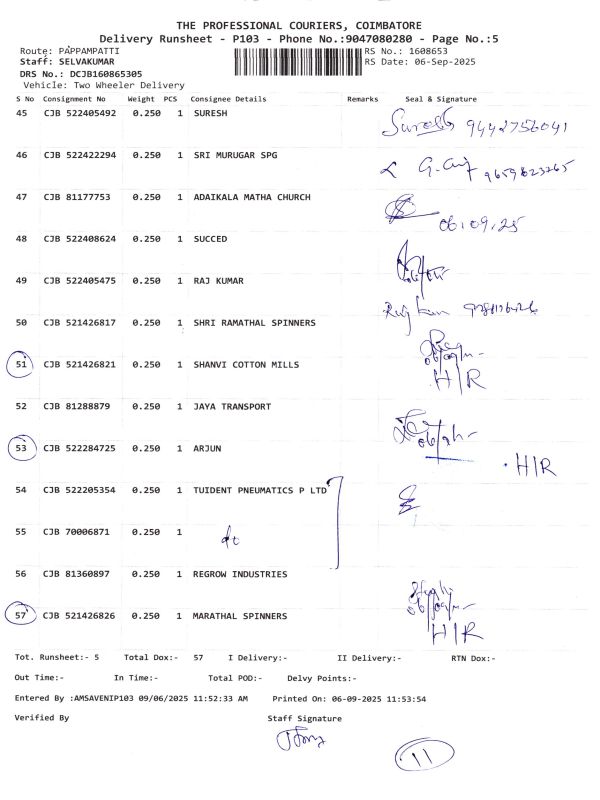 THE PROFESSIONAL COURIERS, COIMBATORE
Delivery Runsheet - P103 - Phone No.:9047080280 - Page No.:5
Route: PAPPAMPATTI
RS No.: 1608653
Staff: SELVAKUMAR
RS Date: 06-Sep-2025
DRS No.: DCJB160865305
Vehicle: Two Wheeler Delivery
S No Consignment No Weight PCS Consignee Details Remarks Seal & Signature
45 CJB 522405492 0.250 1 SURESH
Suresh 9442756041
46 CJB 522422294 0.250 1 SRI MURUGAR SPG
47 CJB 81177753 0.250 1 ADAIKALA MATHA CHURCH
06.09.25
48 CJB 522408624 0.250 1 SUCCED
49 CJB 522405475 0.250 1 RAJ KUMAR
50 CJB 521426817 0.250 1 SHRI RAMATHAL SPINNERS
51 CJB 521426821 0.250 1 SHANVI COTTON MILLS
H/R
52 CJB 81288879 0.250 1 JAYA TRANSPORT
53 CJB 522284725 0.250 1 ARJUN
H/R
54 CJB 522205354 0.250 1 TUIDENT PNEUMATICS P LTD
55 CJB 70006871 0.250 1 do
56 CJB 81360897 0.250 1 REGROW INDUSTRIES
57 CJB 521426826 0.250 1 MARATHAL SPINNERS
H/R
Tot. Runsheet:- 5 Total Dox:- 57 I Delivery:- II Delivery:- RTN Dox:-
Out Time:- In Time:- Total POD:- Delvy Points:-
Entered By :AMSAVENIP103 09/06/2025 11:52:33 AM Printed On: 06-09-2025 11:53:54
Verified By Staff Signature
11